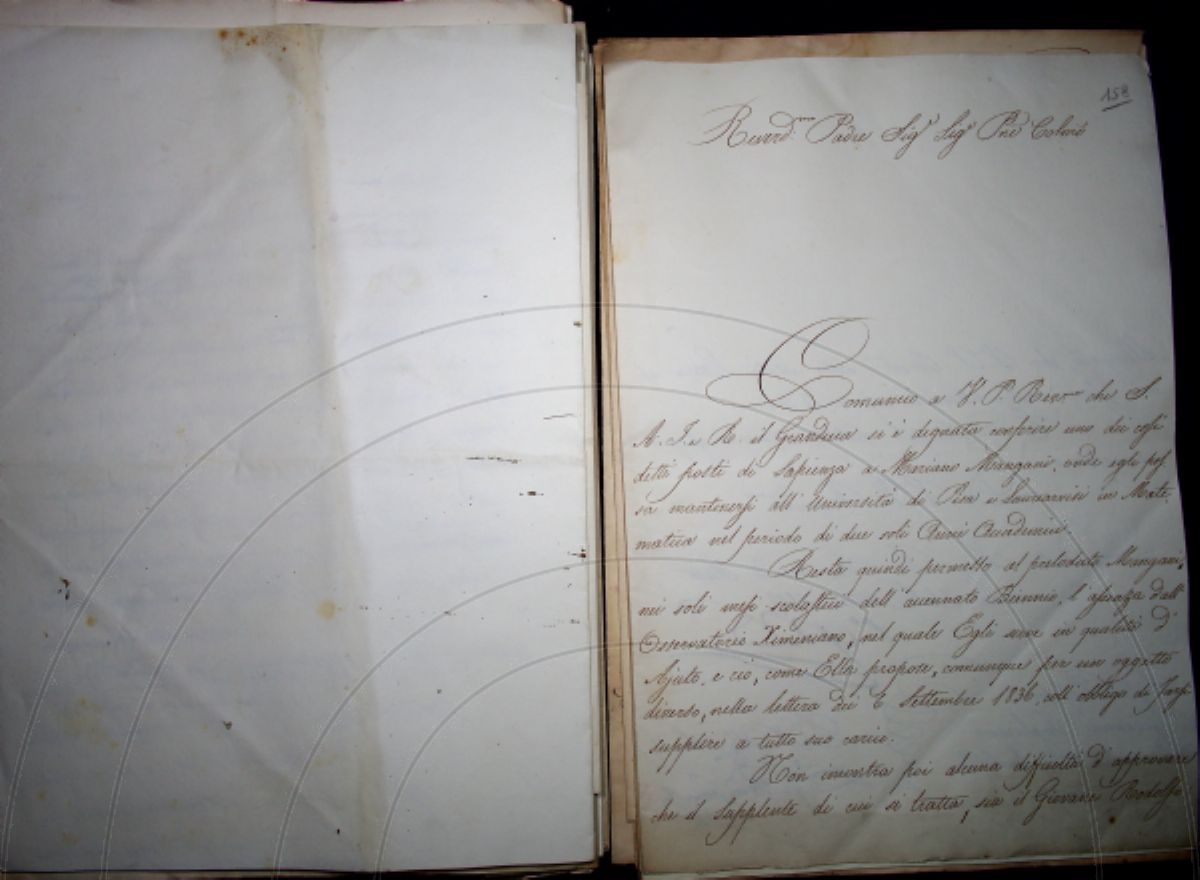 158
Reverd.mo Padre Sig.r Sig.r Pne Colmo
Comunico a V. P. Rev.ma che S.
A. I. e R. il Granduca si è degnata conferire uno dei così
detti posti di Sapienza a Mariano Mangani, onde egli pos_
sa mantenersi all'Università di Pisa e Laurearvisi in Mate_
matica nel periodo di due soli Anni Accademici.
Resta quindi permesso al prelodato Mangani,
nei soli mesi scolastici dell'accennato Biennio, l'assenza dall'
Osservatorio Ximeniano, nel quale Egli serve in qualità d'
Ajuto, e ciò, come Ella propose, comunque per un oggetto
diverso, nella lettera dei 6 Settembre 1836. coll'obbligo di farsi
supplire a tutto suo carico.
Non incontra poi alcuna difficoltà d'approvare
che il Supplente di cui si tratta, sia il Giovane Rodolfo